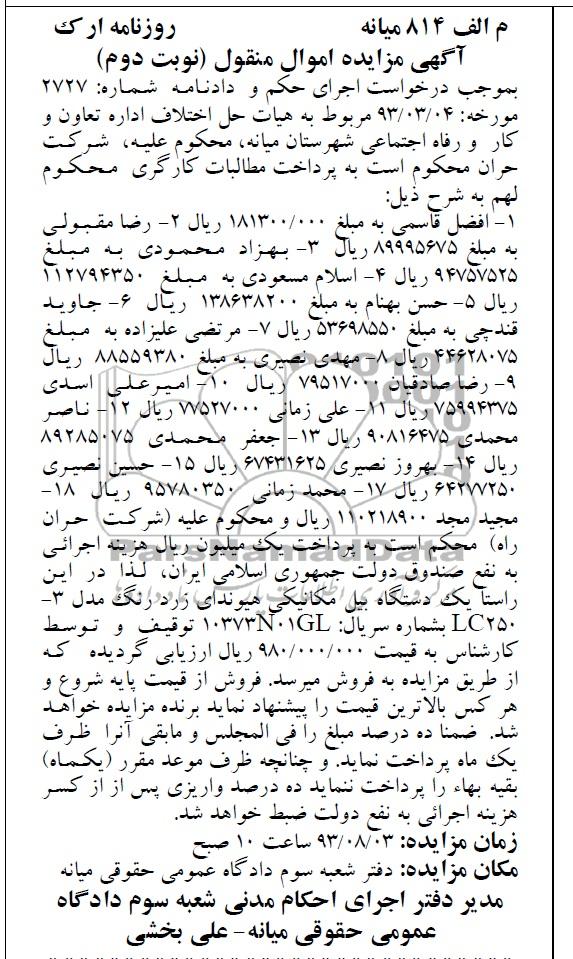 م الف ۸۱۴ میانه روزنامه ارک
آگهی مزایده اموال منقول (نوبت دوم)
بموجب درخواست اجرای حکم و دادنامه شماره: ۲۷۲۷
مورخه: ۹۳/۰۳/۰۴ مربوط به هیات حل اختلاف اداره تعاون و
کار و رفاه اجتماعی شهرستان میانه، محکوم علیه، شرکت
حران محکوم است به پرداخت مطالبات کارگری محکوم
لهم به شرح ذیل:
۱- افضل قاسمی به مبلغ ۱۸۱۳۰۰/۰۰۰ ریال ۲- رضا مقبولی
به مبلغ ۸۹۹۹۵۶۷۵ ریال ۳- بهزاد محمودی به مبلغ
۹۴۷۵۷۵۲۵ ریال ۴- اسلام مسعودی به مبلغ ۱۱۲۷۹۴۳۵۰
ریال ۵- حسن بهنام به مبلغ ۱۳۸۶۳۸۲۰۰ ریال ۶- جاوید
قندچی به مبلغ ۵۳۶۹۸۵۵۰ ریال ۷- مرتضی علیزاده به مبلغ
۴۴۶۲۸۰۷۵ ریال ۸- مهدی نصیری به مبلغ ۸۸۵۵۹۳۸۰ ریال
۹- رضا صادقیان ۷۹۵۱۷۰۰۰ ریال ۱۰- امیرعلی اسدی
۷۵۹۹۴۳۷۵ ریال ۱۱- علی زمانی ۷۷۵۲۷۰۰۰ ریال ۱۲- ناصر
محمدی ۹۰۸۱۶۴۷۵ ریال ۱۳- جعفر محمدی ۸۹۲۸۵۰۷۵
ریال ۱۴- بهروز نصیری ۶۷۴۳۱۶۲۵ ریال ۱۵- حسین نصیری
۶۴۲۷۷۲۵۰ ریال ۱۷- محمد زمانی ۹۵۷۸۰۳۵۰ ریال ۱۸-
مجید مجد ۱۱۰۲۱۸۹۰۰ ریال و محکوم علیه (شرکت حران
راه) محکم است به پرداخت یک میلیون ریال هزینه اجرائی
به نفع صندوق دولت جمهوری اسلامی ایران، لذا در این
راستا یک دستگاه بیل مکانیکی هیوندای زرد رنگ مدل ۳-
LC۲۵۰ بشماره سریال: ۱۰۳۷۳N۰۱GL توقیف و توسط
کارشناس به قیمت ۹۸۰/۰۰۰/۰۰۰ ریال ارزیابی گردیده که
از طریق مزایده به فروش میرسد. فروش از قیمت پایه شروع و
هر کس بالاترین قیمت را پیشنهاد نماید برنده مزایده خواهد
شد. ضمنا ده درصد مبلغ را فی المجلس و مابقی آنرا ظرف
یک ماه پرداخت نماید. و چنانچه ظرف موعد مقرر (یکماه)
بقیه بهاء را پرداخت ننماید ده درصد واریزی پس از از کسر
هزینه اجرائی به نفع دولت ضبط خواهد شد.
زمان مزایده: ۹۳/۰۸/۰۳ ساعت ۱۰ صبح
مکان مزایده: دفتر شعبه سوم دادگاه عمومی حقوقی میانه
مدیر دفتر اجرای احکام مدنی شعبه سوم دادگاه
عمومی حقوقی میانه- علی بخشی
ParsNamadData